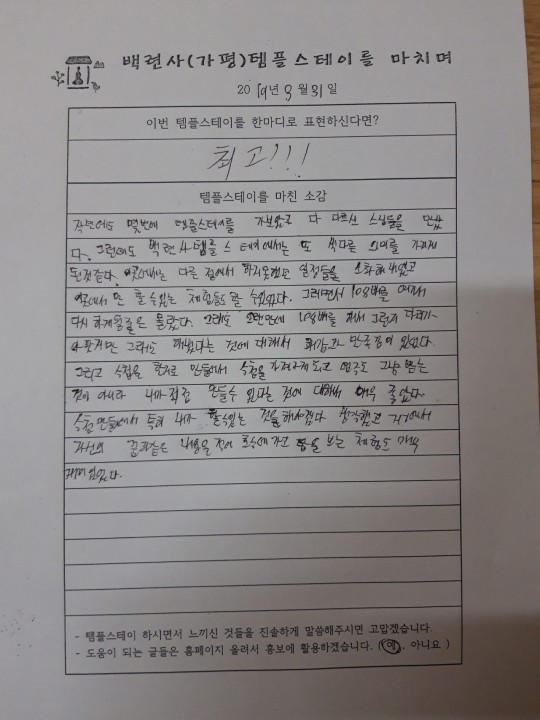 백련사(가평)템플스테이를 마치며
2019년 3월 31일
이번 템플스테이를 한마디로 표현하신다면?
최고!!!
템플스테이를 마친 소감
작년에도 몇번에 템플스테이를 가보았고 다 다르신 스님들을 만났
다. 그런데도 백련사 템플스테이에서는 또 색다른 의미를 가지게
된것같다. 여기에서는 다른 절에서 하지못했던 일정들을 소화해내었고
여기에서 만 할 수 있는 체험도 할 수 있었다. 그러면서 108배를 여기서
다시 하게될줄은 몰랐다. 그래도 오랜만에 108배를 해서 그런지 다리가
아팠지만 그래도 해냈다는 것에 대해서 쾌감과 만족감이 있었다.
그리고 수첩을 한지로 만들어서 수첩을 가져가게 되고 염주도 그냥 받는
것이 아니라 내가 직접 만들수 있다는 것에 대해서 매우 좋았다.
수첩 만들어서 특히 내가 할 수 있는 것을 해야겠다 생각했고 거기에서
자신의 같은 내용을 적어 호수에 가고 물을 보는 체험도 매우
재미있었다.
- 템플스테이 하시면서 느끼신 것들을 진솔하게 말씀해주시면 고맙겠습니다.
- 도움이 되는 글들은 홈페이지 올려서 홍보에 활용하겠습니다. (예, 아니요)